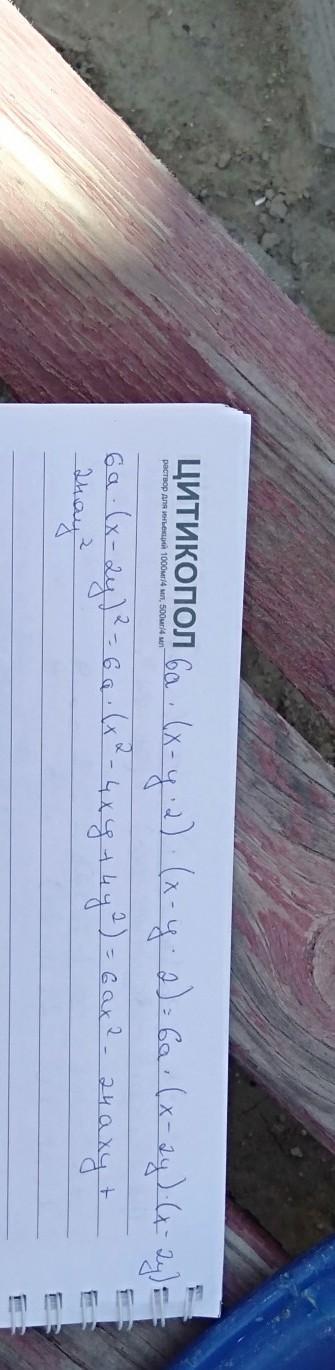 ЦИТИКОПОЛ
раствор для инъекций 1000мг/4 мл, 500мг/4 мл
6a · (x - y · 2) · (x - y · 2) = 6a · (x - 2y) · (x - 2y)
6a · (x - 2y)² = 6a · (x² - 4xy + 4y²) = 6ax² - 24axy +
24ay²